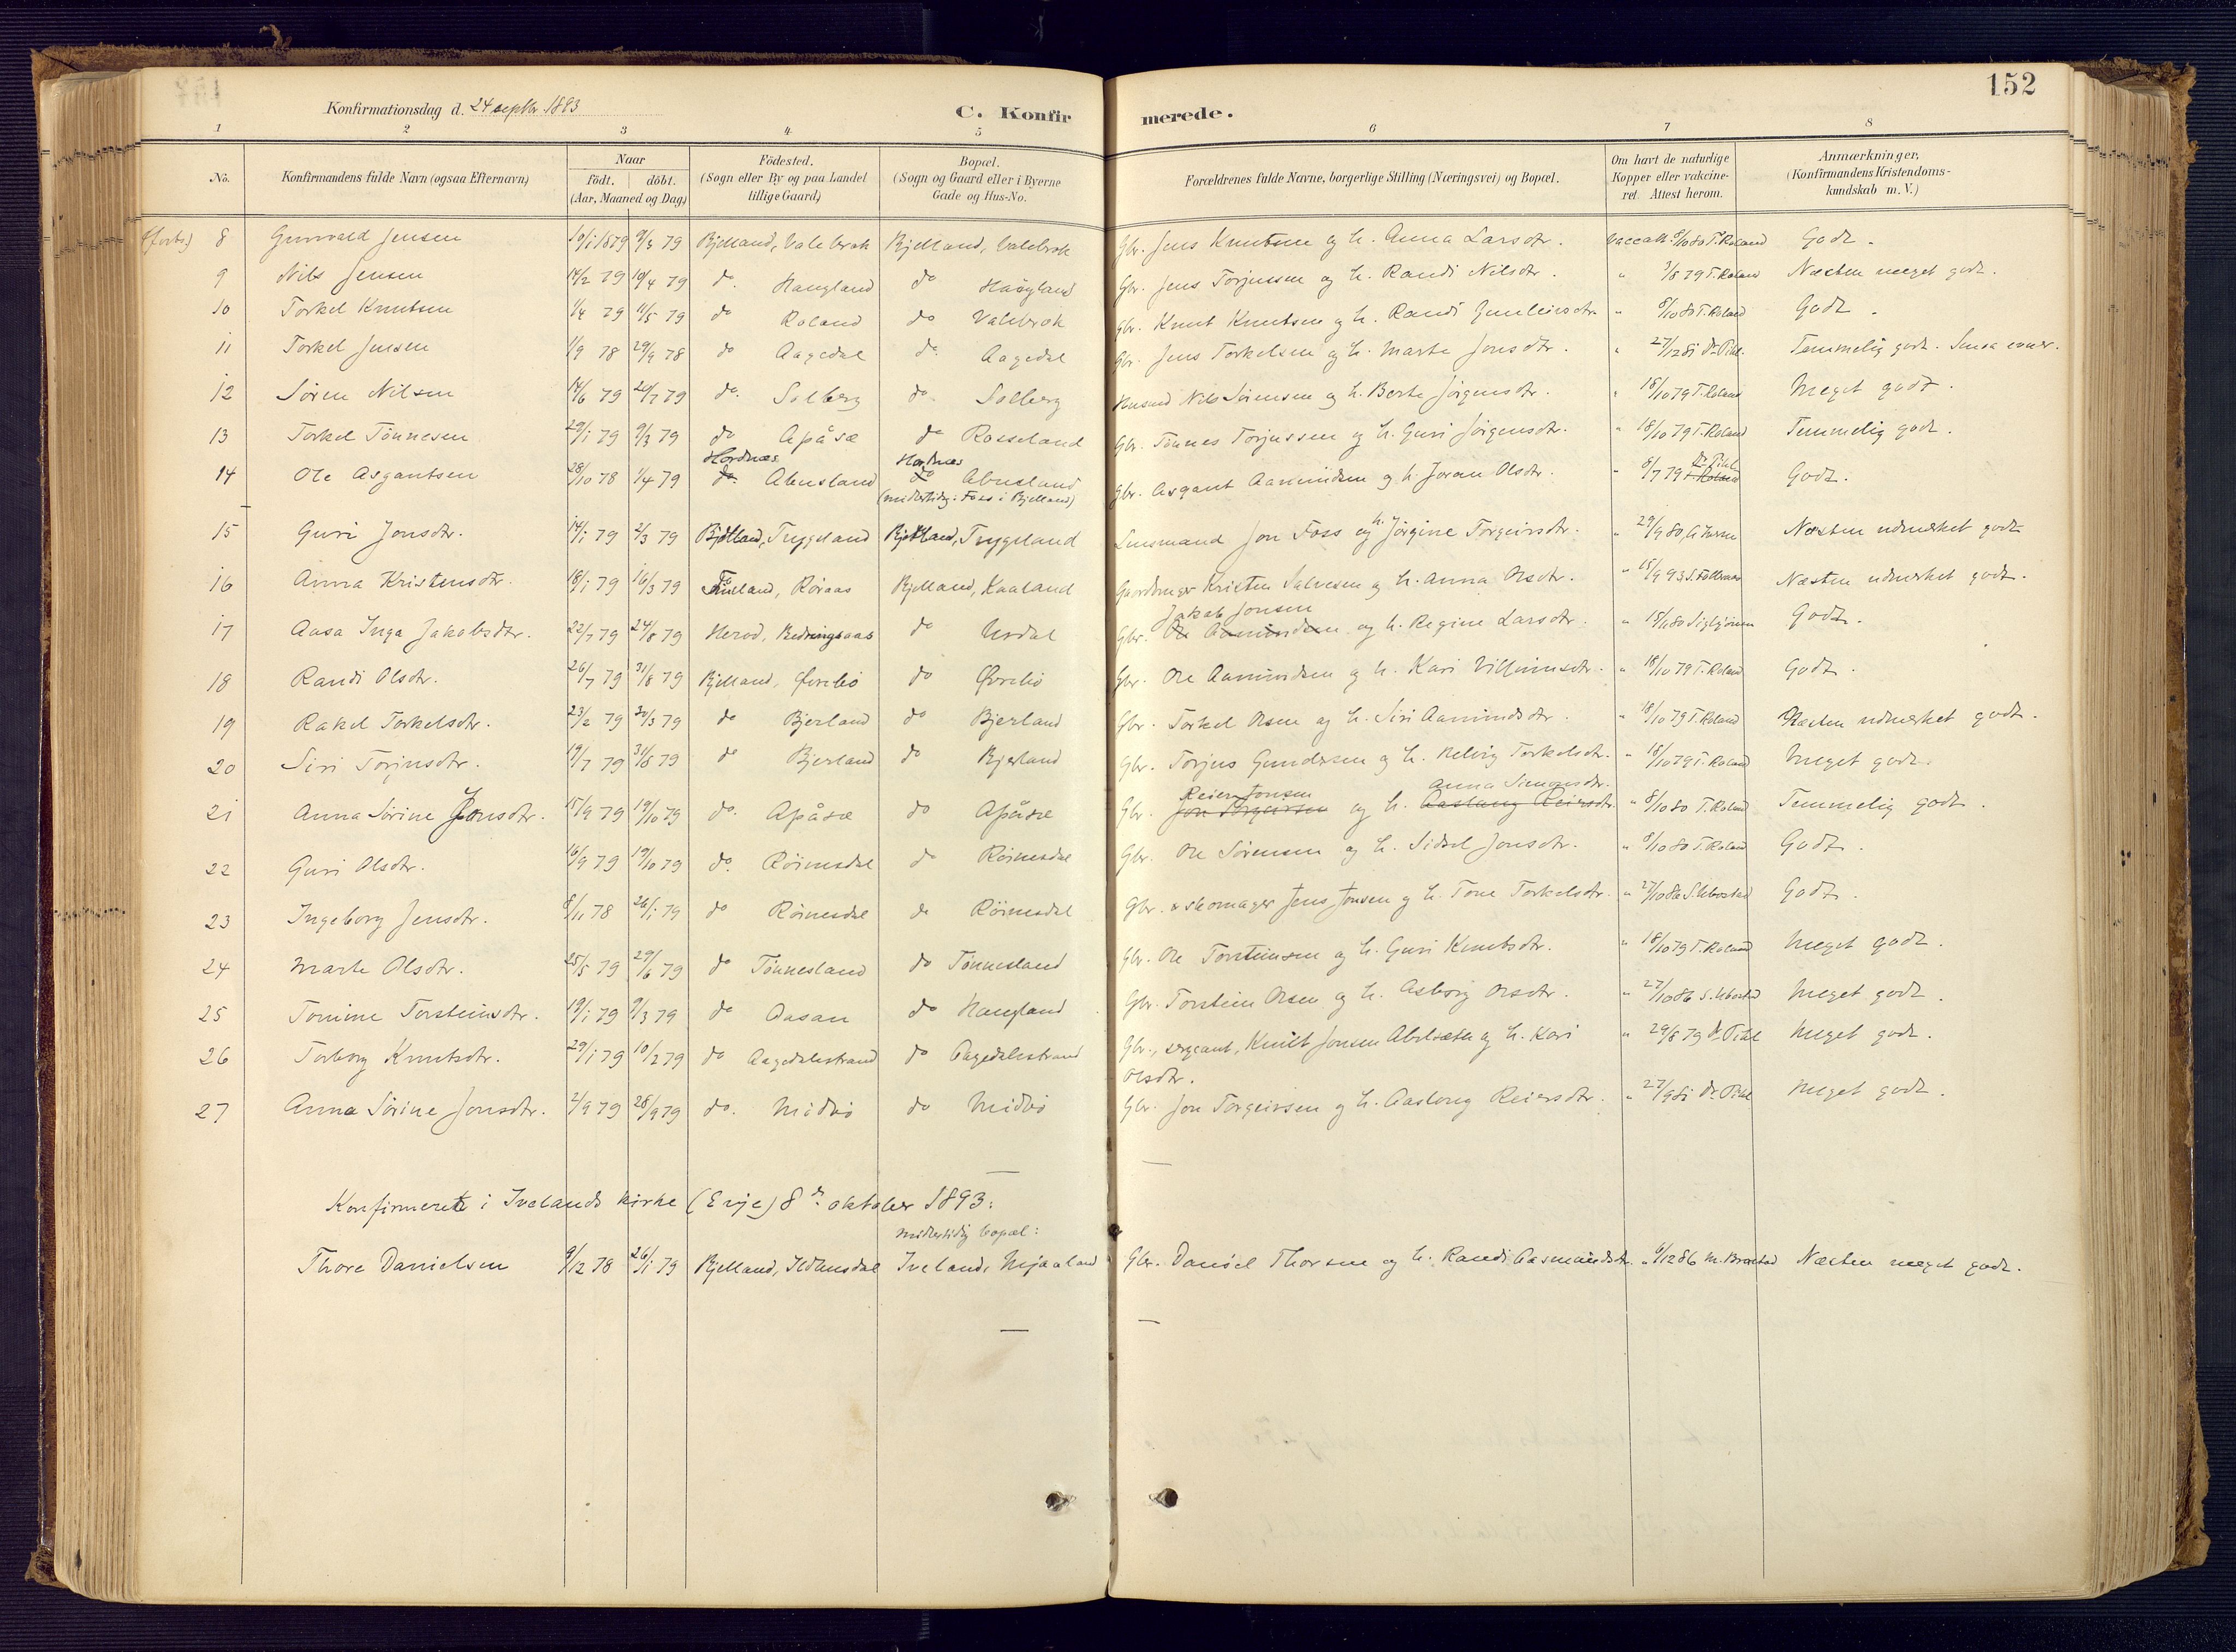 152
Konfirmationsdag d. 24 septbr. 1893
C. Konfirmerede.
1 2 3 4 5 6 7 8
No. Konfirmandens fulde Navn (ogsaa Efternavn) Naar födt. döbt. (Aar, Maaned og Dag) Födested. (Sogn eller By og paa Landet tillige Gaard) Bopæl. (Sogn og Gaard eller i Byerne Gade og Hus-No. Forældrenes fulde Navne, borgerlige Stilling (Næringsvei) og Bopæl. Om havt de naturlige Kopper eller vakcineret. Attest herom. Anmærkninger, (Konfirmandens Kristendomskundskab m. V.)
(forts.) 8 Gunvald Jensen 10/1 1879 9/3 79 Bjelland, Valebrok Bjelland, Valebrok Gbr. Jens Knutsen og h. Anna Larsdtr. Vaccatt. 8/10 80 T. Roland Godt.
9 Nils Jensen 14/2 79 10/4 79 do. Haugland do Haugland Gbr. Jens Torjussen og h. Randi Nilsdtr. " 3/8 79 T. Roland Næsten meget godt.
10 Torkel Knutsen 1/4 79 11/5 79 do Roland do Valebrok Gbr. Knut Knutsen og h. Randi Gunleivsdtr. " 8/10 80 T. Roland Godt.
11 Torkel Jensen 1/9 78 29/9 78 do Aagedal do. Aagedal Gbr. Jens Torkelsen og h. Marte Jonsdtr. " 27/12 81 Dr. Pihl. Temmelig godt. Smaa evner.
12 Sören Nilsen 14/6 79 20/7 79 do. Solberg do. Solberg Husmd Nils Sörensen og h. Berte Jörgensdtr. " 18/10 79 T. Roland Meget godt.
13 Torkel Tönnesen 29/1 79 9/3 79 do Apåsæ do Rosseland Gbr. Tönnes Torjussen og h. Guri Jörgensdtr. " 18/10 79 T. Roland Temmelig godt.
14 Ole Asgautsen 28/10 78 1/4 79 Hordnæs do. Abusland Hordnæs do Abusland (midlertidig: Foss i Bjelland) Gbr. Asgaut Aanundsen og h. Joran Olsdtr. " 8/7 79 Dr. Pihl T. Roland Godt.
15 Guri Jonsdtr. 14/1 79 2/3 79 Bjelland, Trygsland Bjelland, Trygsland Lensmand Jon Foss og h. Jörgine Torgeirsdtr. " 29/9 80, Næsten udmerket godt
16 Anna Kristensdtr. 18/1 79 16/3 79 Röraas Bjelland, Kaaland Gaardbruger Kristen Salvesen og h. Anna Olsdtr. " 15/9 93 Næsten udmerket godt.
17 Aasa Inga Jakobsdtr. 22/7 79 24/8 79 Herod, do Usdal Gbr. Jakob Jonsen Ole Aanundsen og h. Regine Larsdtr. " Godt.
18 Randi Olsdtr. 26/7 79 31/8 79 Bjelland, Övrebö do Övrebö Gbr. Ole Aanundsen og h. Kari Villumsdtr. " 18/10 79 T. Roland Godt.
19 Rakel Torkelsdtr. 23/2 79 30/3 79 do Bjerland do Bjerland Gbr. Torkel Olsen og h. Siri Aanundsdtr. " 18/10 79 T. Roland Næsten udmerket godt.
20 Siri Torjusdtr. 19/7 79 31/8 79 do Bjerland do Bjerland Gbr. Torjus Gundersen og h. Helvig Torkelsdtr. " 18/10 79 T. Roland Meget godt.
21 Anna Sörine Jonsdtr. 15/9 79 19/10 79 do. Apåsæ do Apåsæ Gbr. Reier Jonsen Jon Torgeirsen og h. Anna Simonsdtr. Aaslaug Reiersdtr. " 8/10 80 T. Roland Temmelig godt.
22 Guri Olsdtr. 16/9 79 19/10 79 do. Röinesdal do Röinesdal Gbr. Ole Sörensen og h. Sidsel Jonsdtr. " 8/10 80 T. Roland Godt.
23 Ingeborg Jensdtr. 8/11 78 26/1 79 do Röinesdal do Röinesdal Gbr. & skomager Jens Jonsen og h. Tone Torkelsdtr. " 27/10 86 S. Ubostad Godt.
24 Marte Olsdtr. 25/5 79 29/6 79 do Tönnesland do Tönnesland Gbr. Ole Torsteinsen og h. Guri Knutsdtr. " 18/10 79 T. Roland Meget godt.
25 Tomine Torsteinsdtr. 19/1 79 9/3 79 do Aasan do Haugland Gbr. Torstein Olsen og h. Asborg Olsdtr. " 27/10 86 S. Ubostad Meget godt.
26 Torborg Knutsdtr. 29/1 79 10/2 79 do Aagedalsstrand do Aagedalsstrand Gbr., sergeant, Knut Jonsen Abelsæth og h. Kari Olsdtr. " 29/8 79 Dr. Pihl Meget godt.
27 Anna Sörine Jonsdtr. 2/9 79 28/9 79 do. Midbö do Midbö Gbr. Jon Torgeirsen og h. Aaslaug Reiersdtr. " 27/9 81 Dr. Pihl Meget godt.
Konfirmerede i Ivelands kirke (Evje) 8de oktober 1893:
midlertidig bopæl:
Thore Danielsen 9/12 78 26/1 79 Bjelland, Ildhusdal Iveland, Mjaaland Gbr. Daniel Thorsen og h. Randi Aasmundsdtr. " 6/12 86 M. Brastad Næsten meget godt.